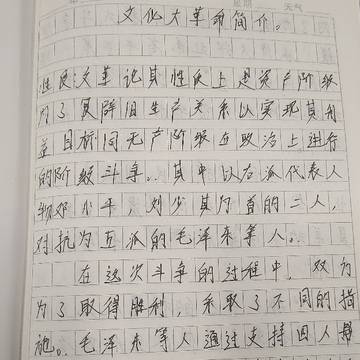 天气
文化大革命简介。
性质文革论其性质上是资产阶级
为了复辟旧生产关系以实现其利
益目标同无产阶级在政治上进行
的阶级斗争。其中以右派代表人
物邓小平，刘少其为首的三人，
对抗为左派的毛泽东等人。
在这次斗争的过程中，双方
为了取得胜利，采取了不同的措
施。毛泽东等人通过支持四人帮